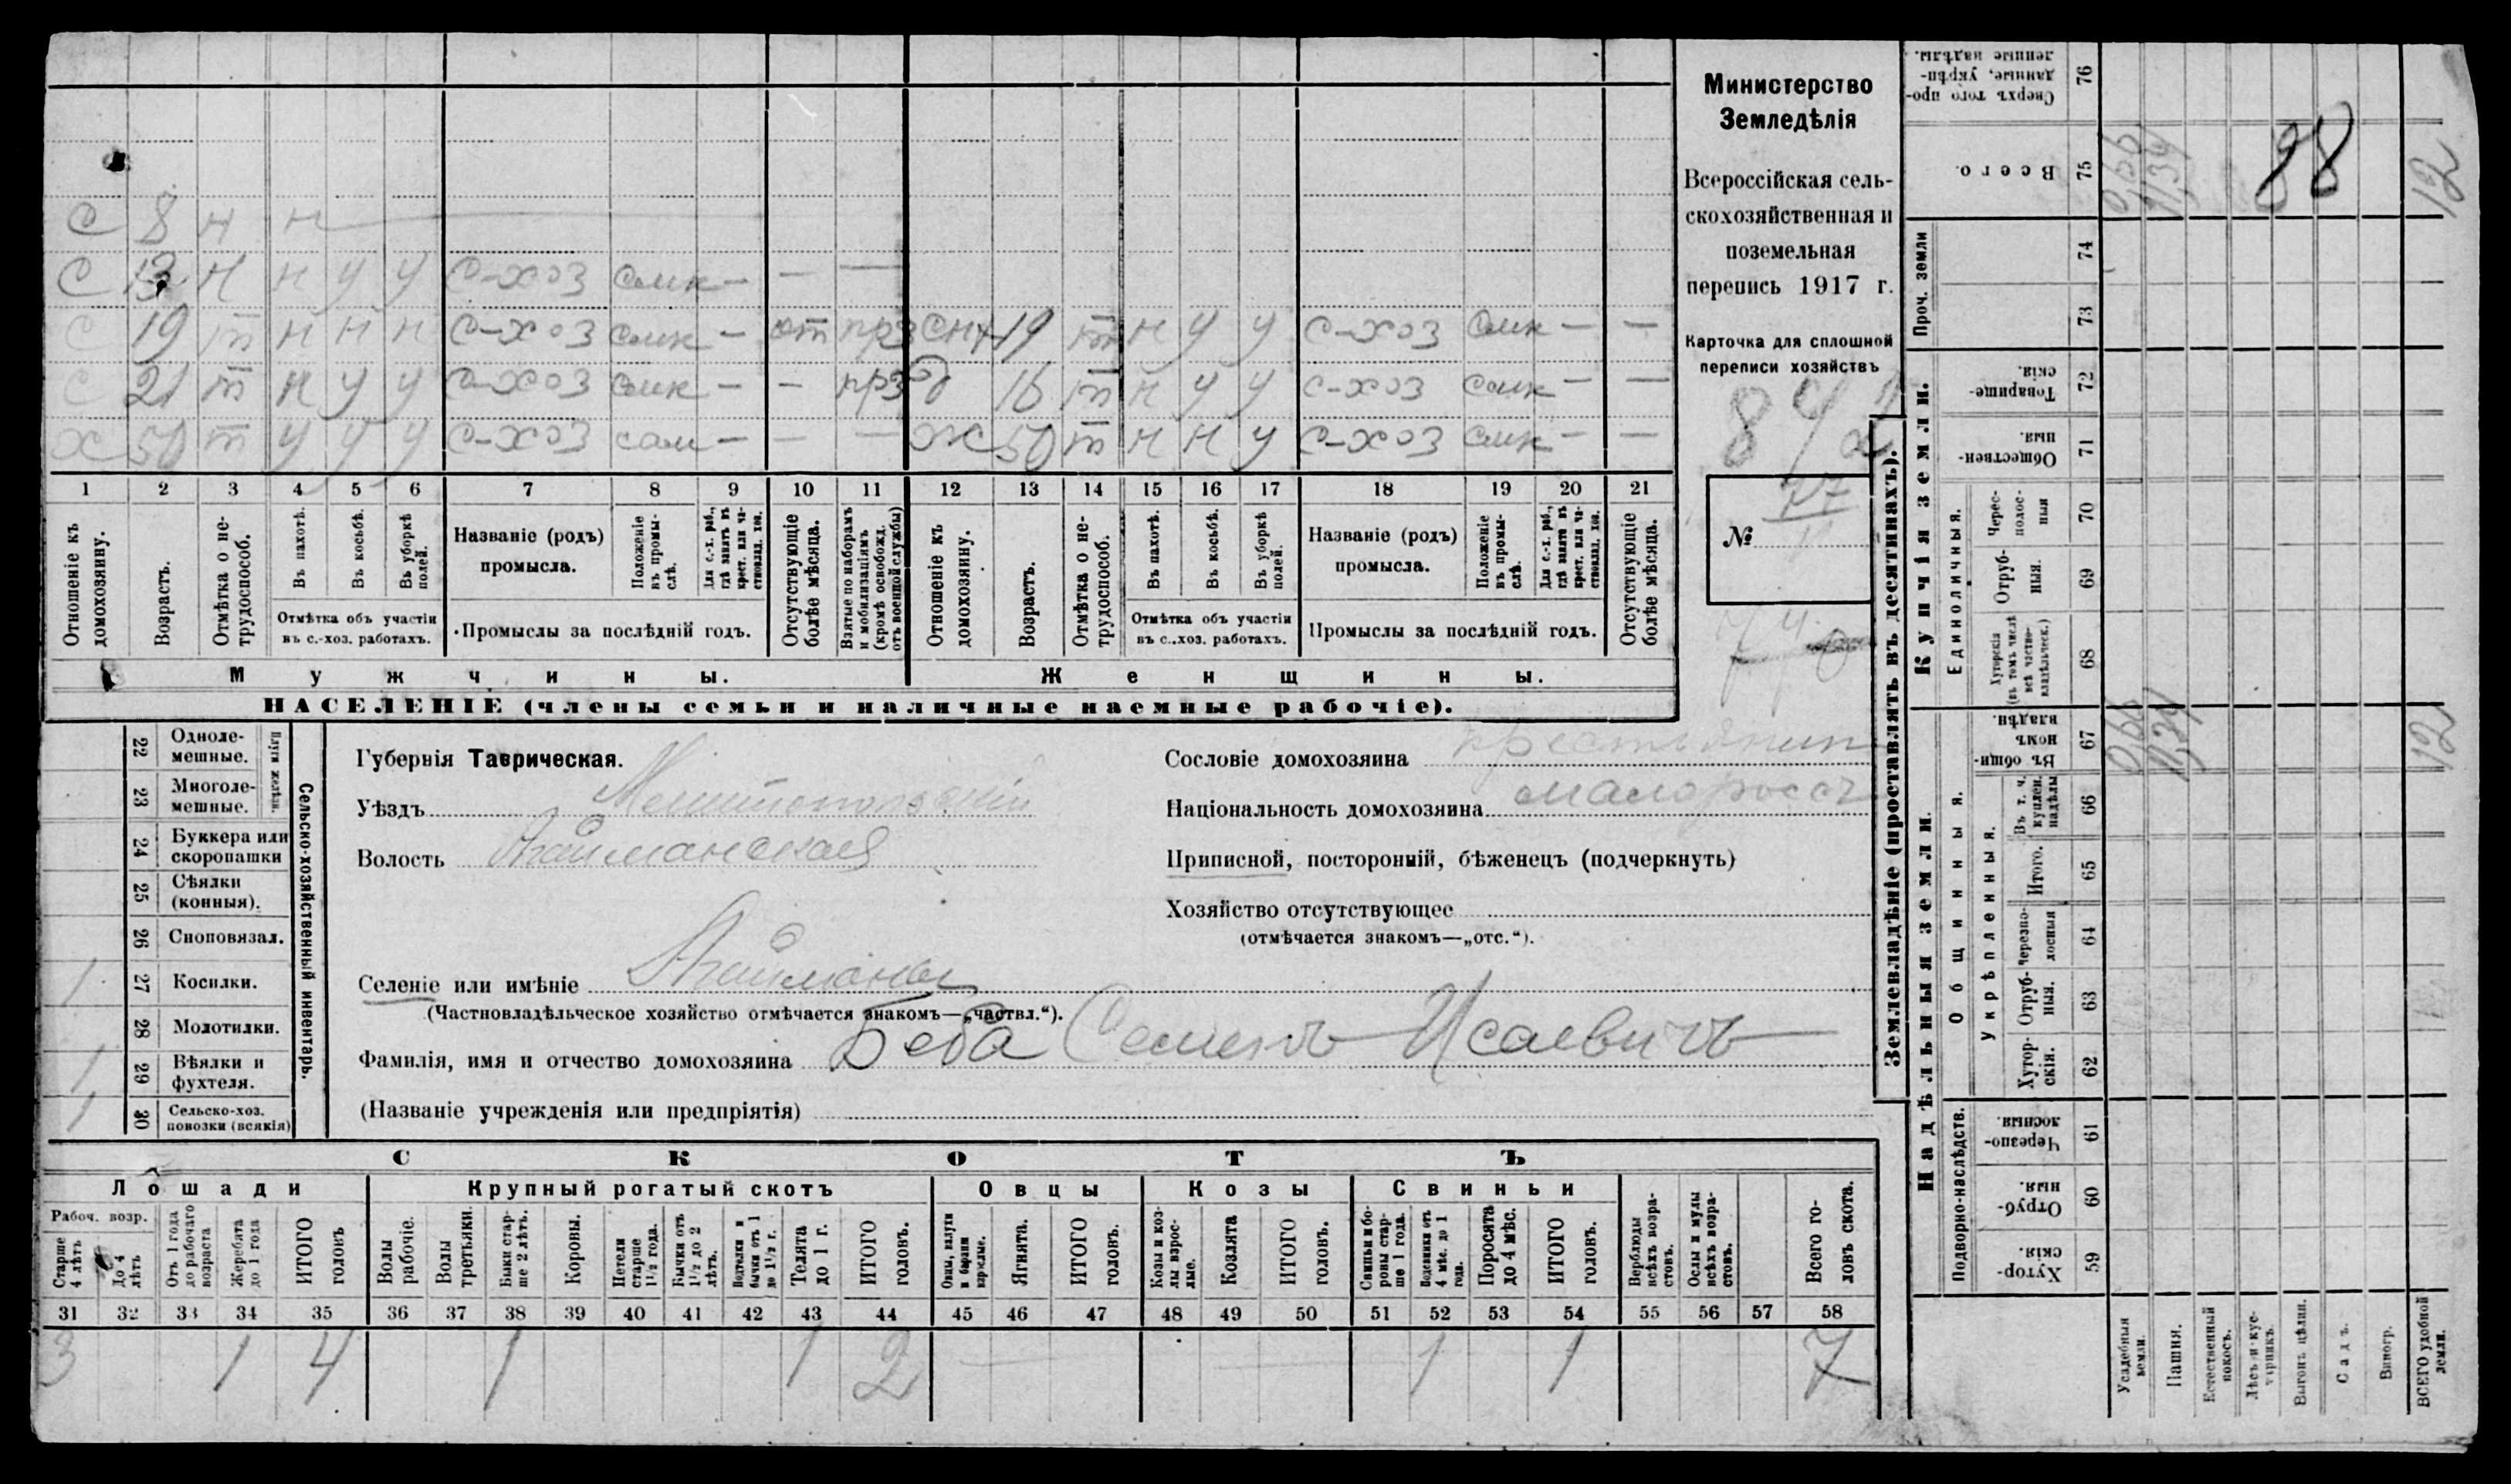 С 8 н н —
С 13 н н у у с-хоз смк — — —
С 19 т н н н с-хоз смк — от прз снх 19 т н у у с-хоз смк — —
С 21 т н у у с-хоз смк — — прз д 16 т н у у с-хоз смк — —
х 50 т у у у с-хоз сам — — — ж 50 т н н у с-хоз смк — —
1 2 3 4 5 6 7 8 9 10 11 12 13 14 15 16 17 18 19 20 21
Отношеніе къ домохозяину.
Возрастъ.
Отмѣтка о нетрудоспособ.
Въ пахотѣ.
Въ косьбѣ.
Въ уборкѣ полей.
Отмѣтка объ участіи
въ с.-хоз. работахъ.
Названіе (родъ)
промысла.
Положеніе въ промыслѣ.
Для с.-х. раб., гдѣ занятъ въ крест. или частновлад. хоз.
Промыслы за послѣдній годъ.
Отсутствующіе болѣе мѣсяца.
Взятые по наборамъ и мобилизаціямъ (кромѣ освобожд. отъ военной службы)
Отношеніе къ домохозяину.
Возрастъ.
Отмѣтка о нетрудоспособ.
Въ пахотѣ.
Въ косьбѣ.
Въ уборкѣ полей.
Отмѣтка объ участіи
въ с.-хоз. работахъ.
Названіе (родъ)
промысла.
Положеніе въ промыслѣ.
Для с.-х. раб., гдѣ занята въ крест. или частновлад. хоз.
Промыслы за послѣдній годъ.
Отсутствующіе болѣе мѣсяца.
Мужчины.
Женщины.
НАСЕЛЕНІЕ (члены семьи и наличные наемные рабочіе).
Министерство
Земледѣлія
Всероссійская сель-
скохозяйственная и
поземельная
перепись 1917 г.
Карточка для сплошной
переписи хозяйствъ
№
Сельско-хозяйственный инвентарь.
Плуги желѣзн.
22 Одноле-
мешные.
23 Многоле-
мешные.
24 Буккера или
скоропашки
25 Сѣялки
(конныя).
26 Сноповязал.
1 27 Косилки.
28 Молотилки.
1 29 Вѣялки и
фухтеля.
1 30 Сельско-хоз.
повозки (всякія)
Губернія Таврическая.
Уѣздъ Мелитопольскій
Волость Агайманская
Селеніе или имѣніе Агайманы
(Частновладѣльческое хозяйство отмѣчается знакомъ—„частвл.“).
Фамилія, имя и отчество домохозяина Беба Семенъ Исаевичъ
(Названіе учрежденія или предпріятія)
Сословіе домохозяина крестьянин
Національность домохозяина малороссъ
Приписной, посторонній, бѣженецъ (подчеркнуть)
Хозяйство отсутствующее
(отмѣчается знакомъ—„отс.“).
СКОТЪ
Лошади
Крупный рогатый скотъ
Овцы
Козы
Свиньи
Рабоч. возр.
Старше 4 лѣтъ
До 4 лѣтъ
Отъ 1 года до рабочаго возраста
Жеребята до 1 года
ИТОГО головъ
Волы рабочіе.
Волы третьяки.
Быки старше 2 лѣтъ.
Коровы.
Нетели старше 1½ года.
Бычки отъ 1½ до 2 лѣтъ.
Телята до 1 г.
ИТОГО головъ.
Ягнята.
ИТОГО головъ.
Козы и козлы взрослые.
Козлята
ИТОГО головъ.
Свиньи и боровы старше 1 года.
Поросята до 4 мѣс.
ИТОГО головъ.
Верблюды всѣхъ возрастовъ.
Ослы и мулы всѣхъ возрастовъ.
Всего головъ скота.
31 32 33 34 35 36 37 38 39 40 41 42 43 44 45 46 47 48 49 50 51 52 53 54 55 56 57 58
3 1 4 1 1 2 1 1 7
Землевладѣніе (проставлять въ десятинахъ).
Надѣльныя земли.
Купчія земли.
Проч. земли
Подворно-наслѣдств.
Общинныя.
Укрѣпленныя.
Единоличныя.
Сверхъ того проданные, укрѣпленные надѣлы.
76
Всего.
75
74
73
Товарищескія.
72
Общественныя.
71
Чересполосныя
70
Отрубныя.
69
Хуторскія (въ томъ числѣ всѣ частновладѣльческ.)
68
Въ общинномъ владѣн.
67
Въ т. ч. куплен. надѣлы
66
Итого.
65
Черезполосныя
64
Отрубныя.
63
Хуторскія.
62
Черезполосныя
61
Отрубныя.
60
Хуторскія.
59
Усадебныя земли.
Пашня.
Естественный покосъ.
Лѣсъ и кустарникъ.
Выгонъ цѣлин.
Садъ.
Виногр.
ВСЕГО удобной земли.
0,66 11,34 12
0,66 11,34 88 12